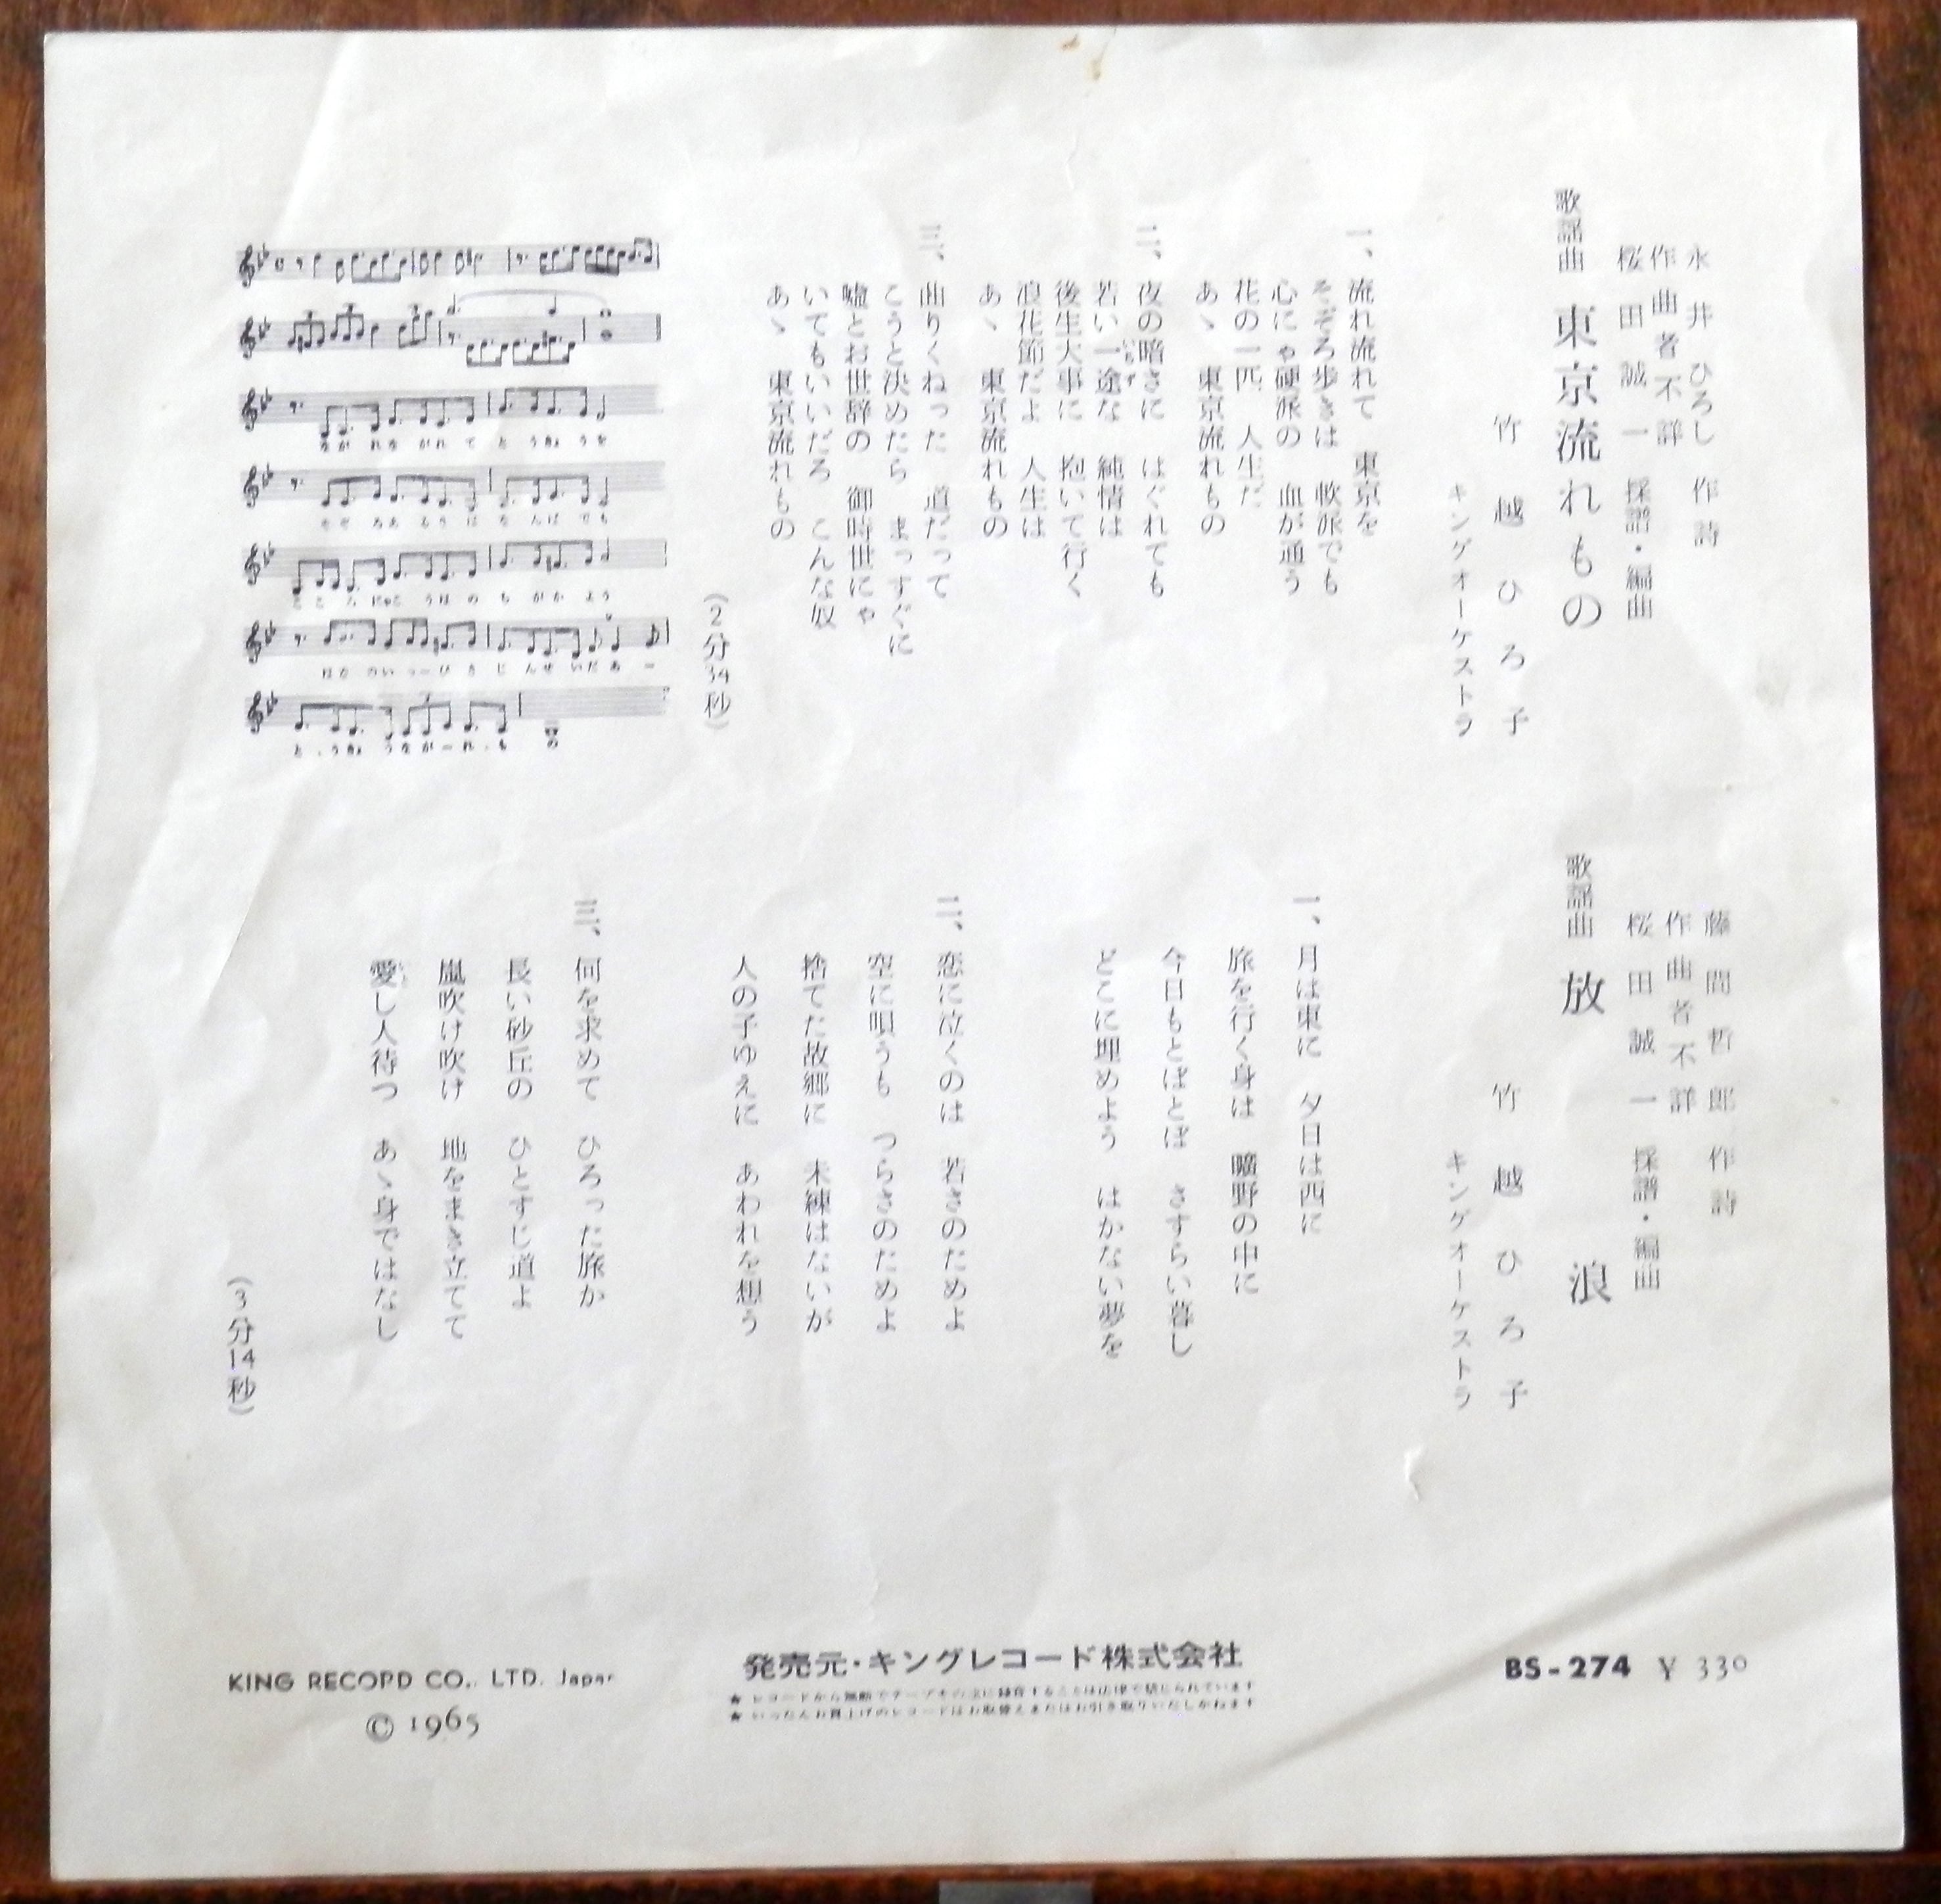 永井ひろし 作詩
作曲者不詳
桜田誠一 採譜・編曲
歌謡曲 東京流れもの
竹越ひろ子
キングオーケストラ
一、流れ流れて 東京を
そぞろ歩きは 軟派でも
心にゃ硬派の 血が通う
花の一匹 人生だ
あゝ 東京流れもの
二、夜の暗さに はぐれても
若い一途な 純情は
いちず
後生大事に 抱いて行く
浪花節だよ 人生は
あゝ 東京流れもの
三、曲りくねった 道だって
こうと決めたら まっすぐに
嘘とお世辞の 御時世にゃ
いてもいいだろ こんな奴
あゝ 東京流れもの
(2分34秒)
ながれながれてとうきょうを
そぞろあるきはなんぱでも
こころにゃこうはのちがかよう
はなのいっーぴきじんせいだあー
と.うきょうながーれ.もの
藤間哲郎 作詩
作曲者不詳
桜田誠一 採譜・編曲
歌謡曲 放浪
竹越ひろ子
キングオーケストラ
一、月は東に 夕日は西に
旅を行く身は 曠野の中に
今日もとぼとぼ さすらい暮し
どこに埋めよう はかない夢を
二、恋に泣くのは 若さのためよ
空に唄うも つらさのためよ
捨てた故郷に 未練はないが
人の子ゆえに あわれを想う
三、何を求めて ひろった旅か
長い砂丘の ひとすじ道よ
嵐吹け吹け 地をまき立てて
愛し人待つ あゝ身ではなし
(3分14秒)
KING RECORD CO., LTD. Japan
© 1965
発売元・キングレコード株式会社
★ レコードから無断でテープその他に録音することは法律で禁じられています
★ いったんお買上げのレコードはお取替えまたはお引き取りいたしかねます
BS-274 ¥ 330